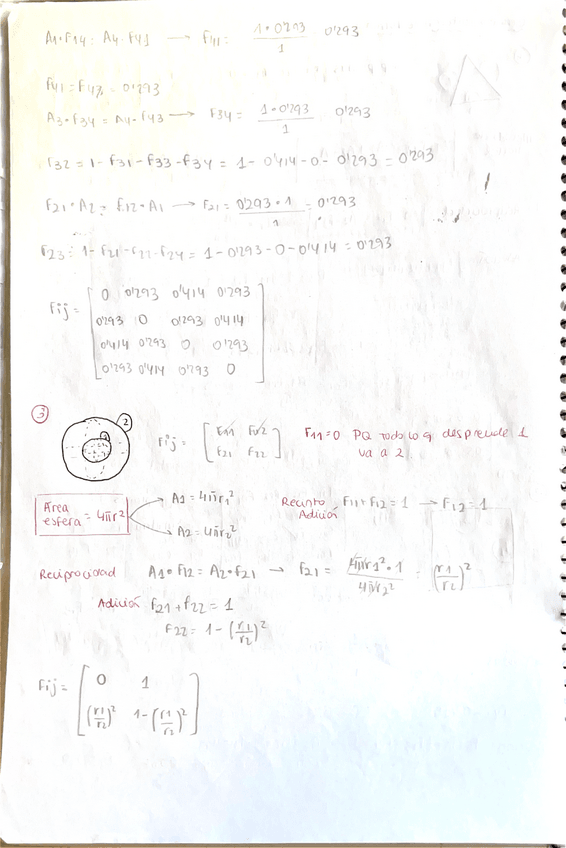 A1·F14 = A4·F41 → F41 = 1·0'293 / 1 0'293
F41 = F43 = 0'293
A3·F34 = A4·F43 → F34 = 1·0'293 / 1 0'293
F32 = 1 - F31 - F33 - F34 = 1 - 0'414 - 0 - 0'293 = 0'293
F21·A2 = F12·A1 → F21 = 0'293·1 / 1 = 0'293
F23 = 1 - F21 - F22 - F24 = 1 - 0'293 - 0 - 0'414 = 0'293
Fij =
0 0'293 0'414 0'293
0'293 0 0'293 0'414
0'414 0'293 0 0'293
0'293 0'414 0'293 0
3
2
1
Fij = [ F11 F12
F21 F22 ]
F11=0 PQ todo lo q desprende 1
va a 2.
Área esfera = 4πr²
A1 = 4πr1²
A2 = 4πr2²
Recinto Adición F11+F12 = 1 → F12 = 1
Reciprocidad A1·F12 = A2·F21 → F21 = 4πr1²·1 / 4πr2² = (r1/r2)²
Adición F21+F22 = 1
F22 = 1 - (r1/r2)²
Fij = [ 0 1
(r1/r2)² 1-(r1/r2)² ]